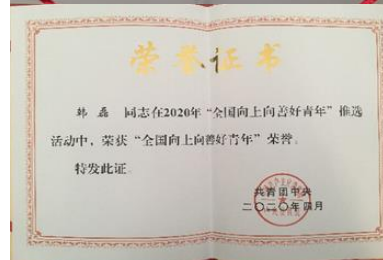 荣誉证书
韩磊 同志在2020年“全国向上向善好青年”推选
活动中，荣获“全国向上向善好青年”荣誉。
特发此证。
共青团中央
二〇二〇年四月